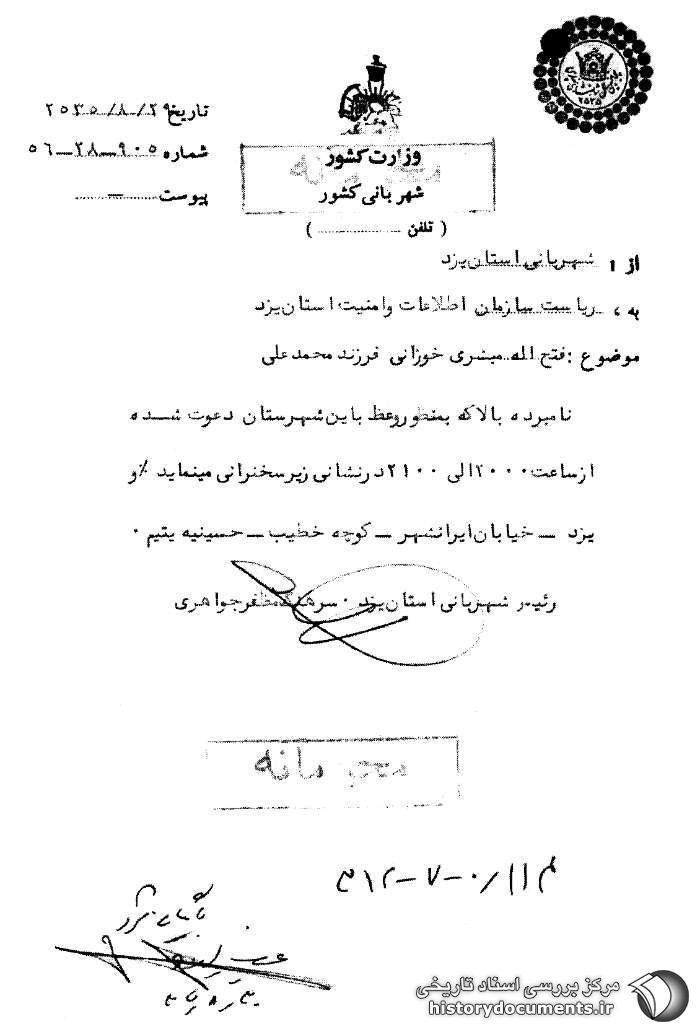 تاریخ ۲۵۳۵/۸/۲۹
شماره ۹۰۵-۲۸-۵۶
پیوست —
وزارت کشور
شهربانی کشور
( تلفن )
از : شهربانی استان یزد
به ، ریاست سازمان اطلاعات و امنیت استان یزد
موضوع : فتح الله مبشری خوزانی فرزند محمدعلی
نامبرده بالا که بمنظور وعظ باین شهرستان دعوت شده
از ساعت ۲۰۰۰ الی ۲۱۰۰ در نشانی زیر سخنرانی مینماید %و
یزد – خیابان ایرانشهر – کوچه خطیب – حسینیه یتیم ۰
رئیس شهربانی استان یزد ۰ سرهنگ مظفر جواهری
محرمانه
مرکز بررسی اسناد تاریخی
historydocuments.ir